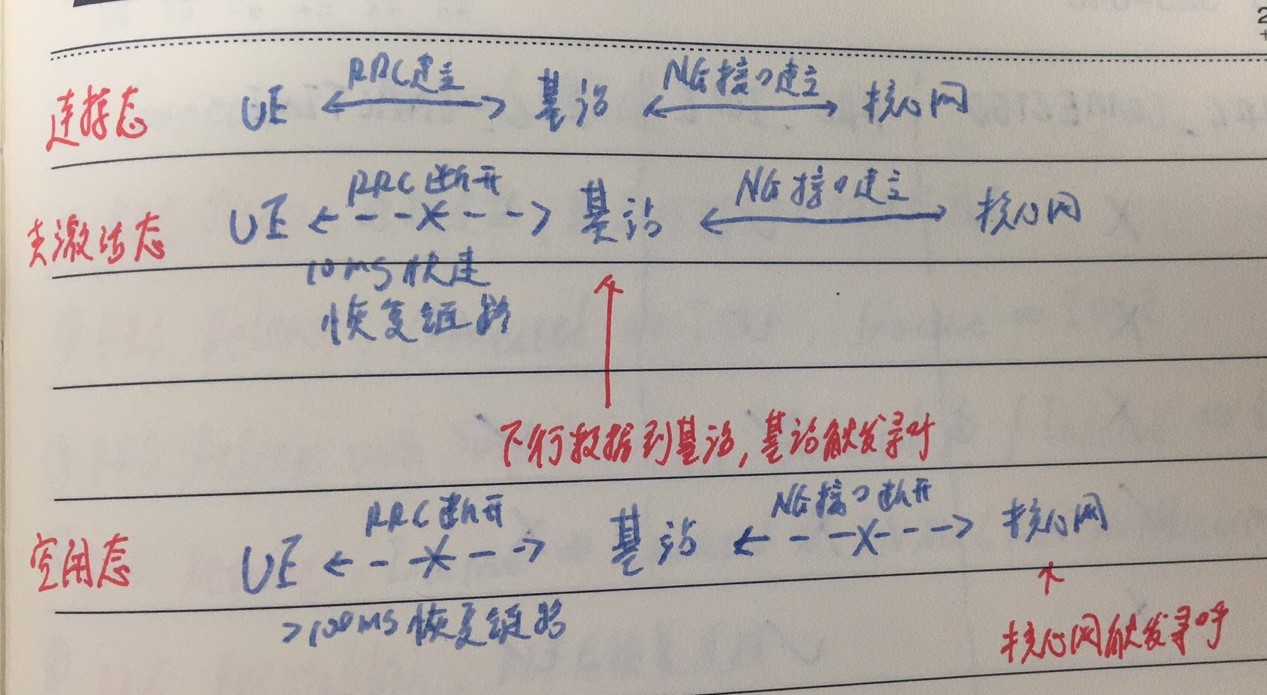 RRC建立 NG接口建立
连接态 UE 基站 核心网
RRC断开 NG接口建立
去激活态 UE 基站 核心网
10ms快速
恢复链路
下行数据到基站,基站触发寻呼
RRC断开 NG接口断开
空闲态 UE 基站 核心网
>100ms恢复链路
核心网触发寻呼